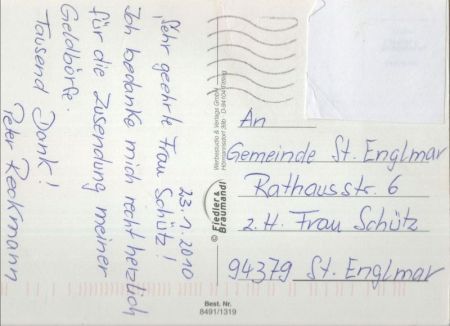 23.1.2010
Sehr geehrte Frau Schütz!
Ich bedanke mich recht herzlich
für die Zusendung meiner
Geldbörse.
Tausend Dank!
Peter Reckmann
An
Gemeinde St. Englmar
Rathausstr. 6
z.H. Frau Schütz
94379 St. Englmar
© Fiedler &
Braumandl
Werbestudio & Verlags GmbH
Best. Nr.
8491/1319